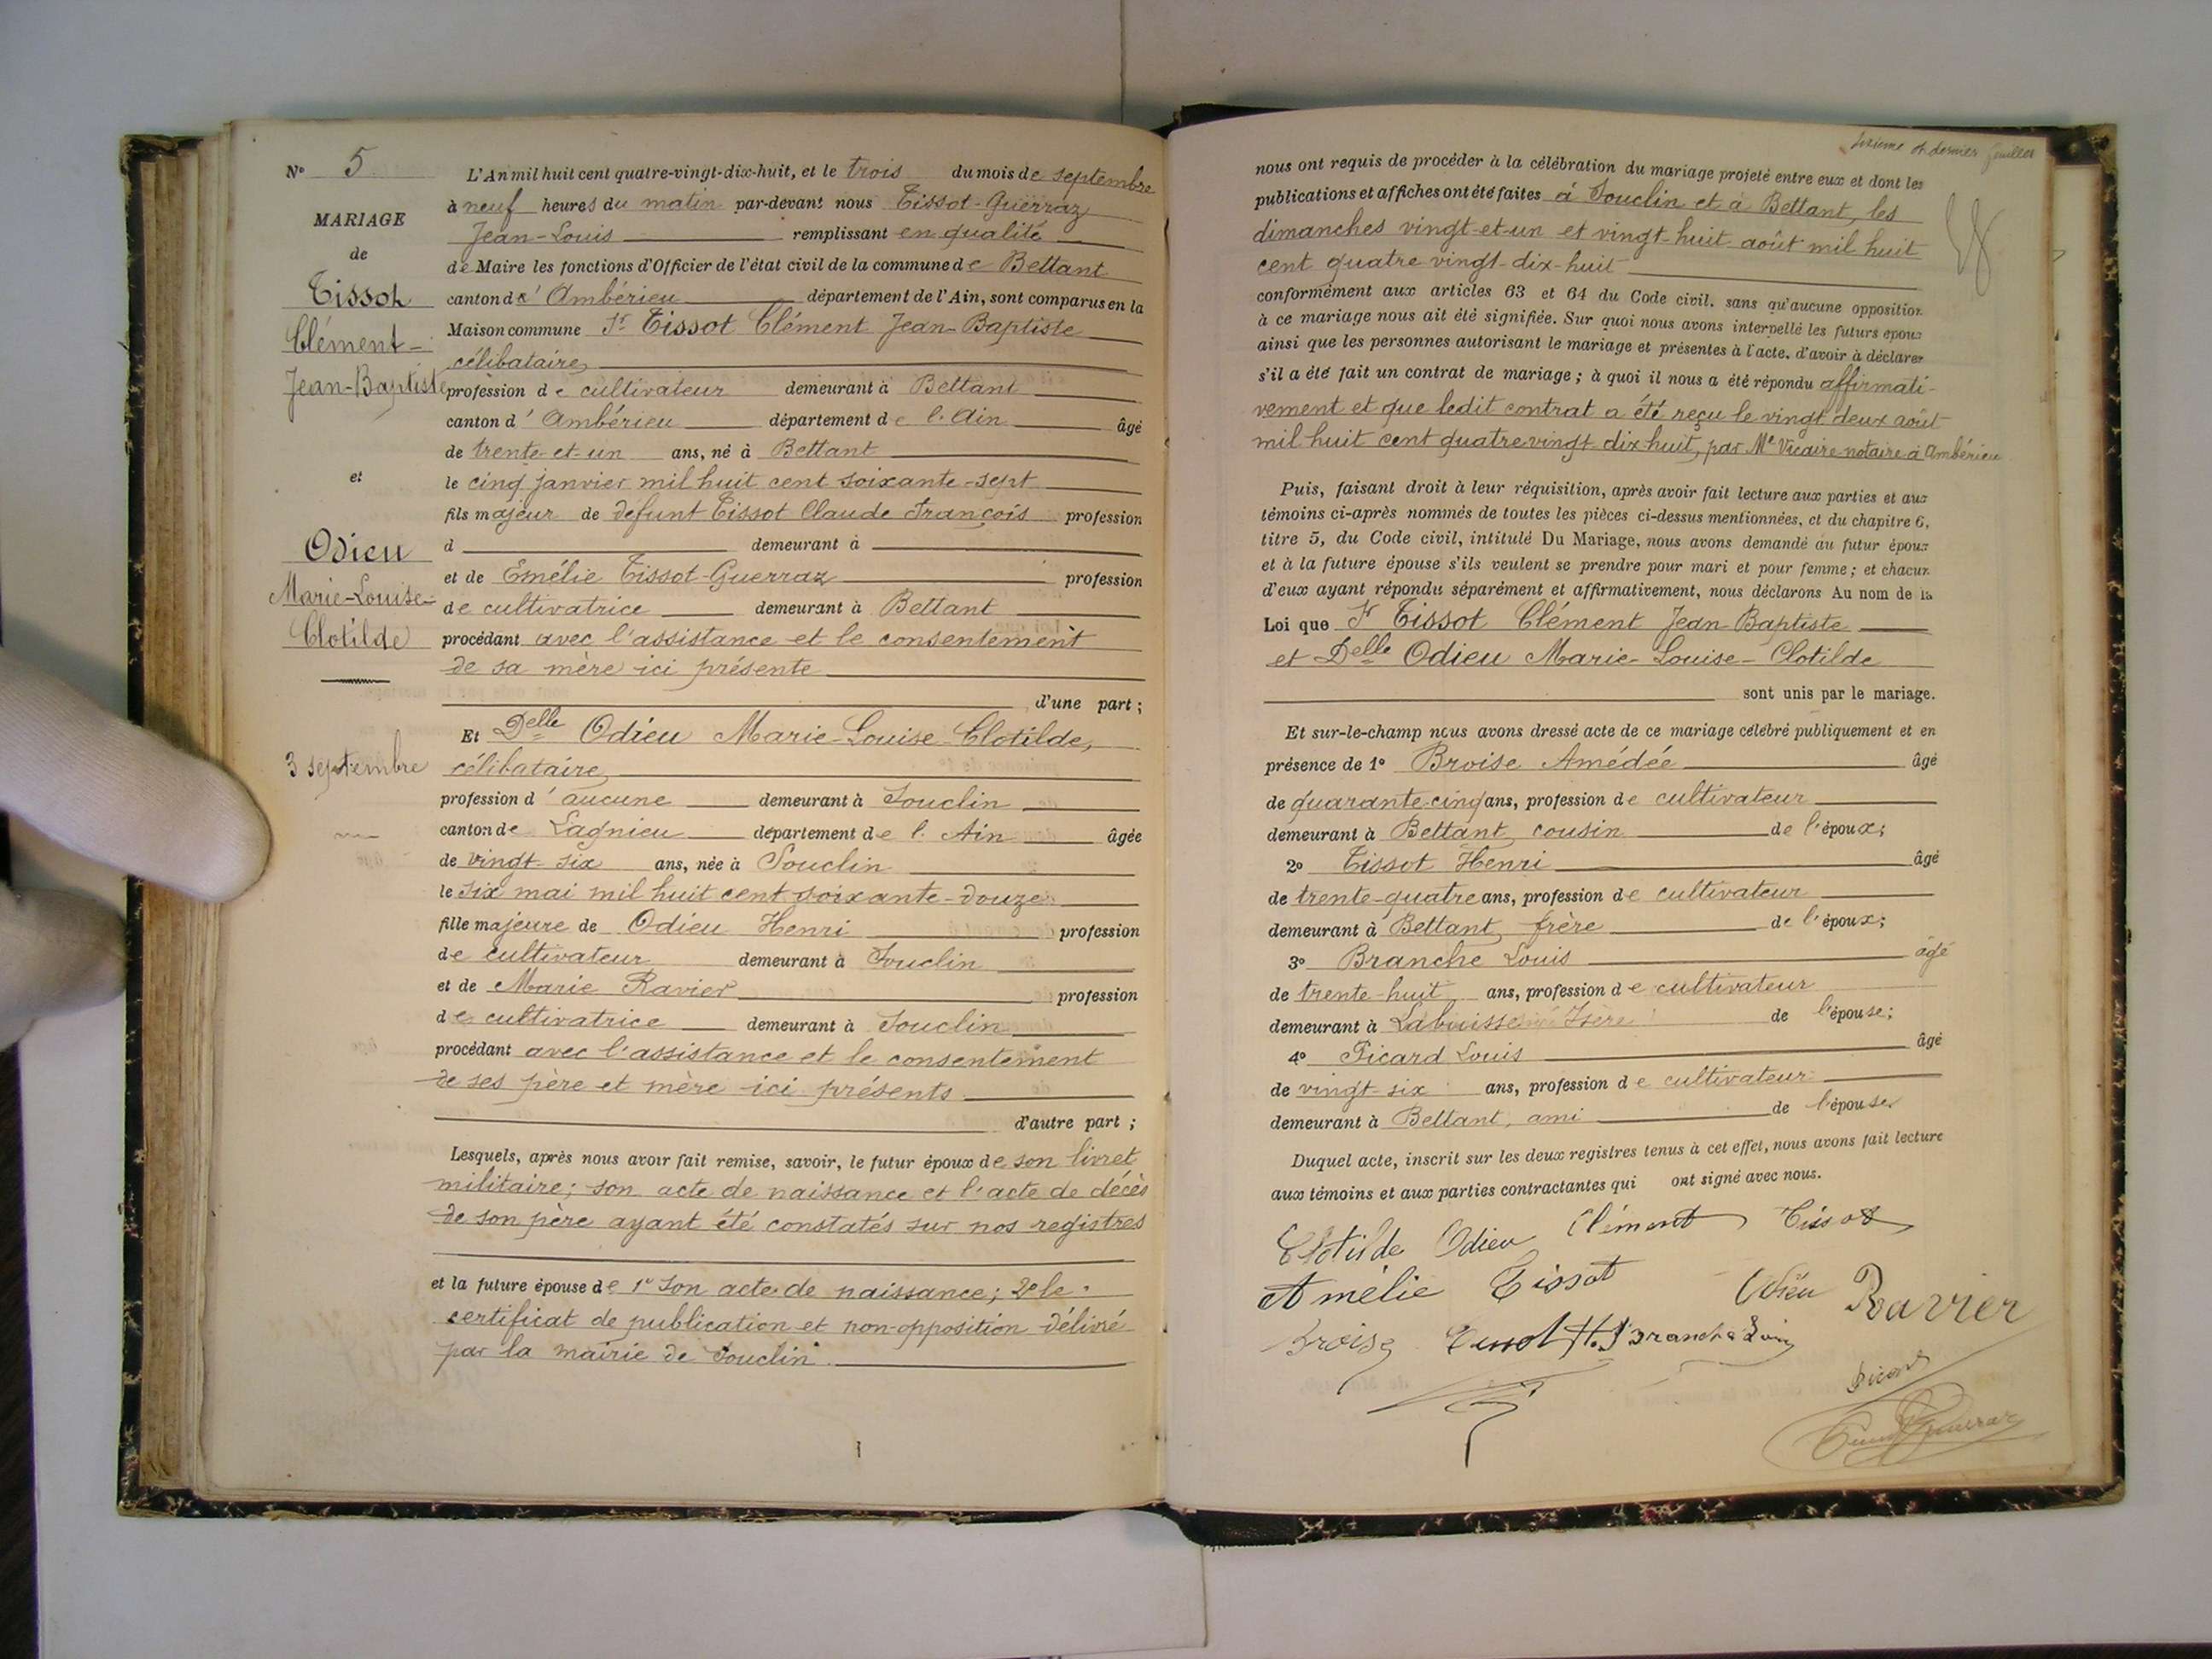 N° 5
MARIAGE
de
Tissot
Clément-
Jean-Baptiste
et
Odieu
Marie-Louise-
Clotilde
3 septembre
L'An mil huit cent quatre-vingt-dix-huit, et le trois du mois de septembre
à neuf heures du matin par-devant nous Tissot-Guerraz
Jean-Louis remplissant en qualité
de Maire les fonctions d'Officier de l'état civil de la commune de Bettant
canton d' Ambérieu département de l'Ain, sont comparus en la
Maison commune Sr Tissot Clément Jean-Baptiste
célibataire,
profession de cultivateur demeurant à Bettant
canton d' Ambérieu département de l'Ain âgé
de trente-et-un ans, né à Bettant
le cinq janvier mil huit cent soixante-sept
fils majeur de defunt Tissot Claude François profession
d demeurant à
et de Emélie Tissot-Guerraz profession
de cultivatrice demeurant à Bettant
procédant avec l'assistance et le consentement
de sa mère ici présente
d'une part ;
Et Delle Odieu Marie-Louise-Clotilde,
célibataire,
profession d' aucune demeurant à Souclin
canton de Lagnieu département de l'Ain âgée
de vingt-six ans, née à Souclin
le six mai mil huit cent soixante-douze
fille majeure de Odieu Henri profession
de cultivateur demeurant à Souclin
et de Marie Ravier profession
de cultivatrice demeurant à Souclin
procédant avec l'assistance et le consentement
de ses père et mère ici présents
d'autre part ;
Lesquels, après nous avoir fait remise, savoir, le futur époux de son livret
militaire; son acte de naissance et l'acte de décès
de son père ayant été constatés sur nos registres
et la future épouse de 1° son acte de naissance; 2° le
certificat de publication et non-opposition délivré
par la mairie de Souclin.
sixième et dernier feuillet
nous ont requis de procéder à la célébration du mariage projeté entre eux et dont les
publications et affiches ont été faites à Souclin et à Bettant, les
dimanches vingt-et-un et vingt-huit août mil huit
cent quatre-vingt-dix-huit
conformément aux articles 63 et 64 du Code civil, sans qu'aucune opposition
à ce mariage nous ait été signifiée. Sur quoi nous avons interpellé les futurs époux
ainsi que les personnes autorisant le mariage et présentes à l'acte, d'avoir à déclarer
s'il a été fait un contrat de mariage ; à quoi il nous a été répondu affirmati-
vement et que ledit contrat a été reçu le vingt deux août
mil huit cent quatre vingt dix huit, par Me Vicaire notaire à Ambérieu
Puis, faisant droit à leur réquisition, après avoir fait lecture aux parties et aux
témoins ci-après nommés de toutes les pièces ci-dessus mentionnées, et du chapitre 6,
titre 5, du Code civil, intitulé Du Mariage, nous avons demandé au futur époux
et à la future épouse s'ils veulent se prendre pour mari et pour femme ; et chacun
d'eux ayant répondu séparément et affirmativement, nous déclarons Au nom de la
Loi que Sr Tissot Clément Jean-Baptiste
et Delle Odieu Marie-Louise-Clotilde
sont unis par le mariage.
Et sur-le-champ nous avons dressé acte de ce mariage célébré publiquement et en
présence de 1° Broise Amédée âgé
de quarante-cinq ans, profession de cultivateur
demeurant à Bettant, cousin de l'époux;
2° Tissot Henri âgé
de trente-quatre ans, profession de cultivateur
demeurant à Bettant, frère de l'époux;
3° Branche Louis âgé
de trente-huit ans, profession de cultivateur
demeurant à Labuisse Isère de l'épouse;
4° Picard Louis âgé
de vingt-six ans, profession de cultivateur
demeurant à Bettant, ami de l'épouse
Duquel acte, inscrit sur les deux registres tenus à cet effet, nous avons fait lecture
aux témoins et aux parties contractantes qui ont signé avec nous.
Clotilde Odieu Clément Tissot
Amélie Tissot Odieu Ravier
Broise Tissot H. Branche Louis
Picard
Tissot Guerraz